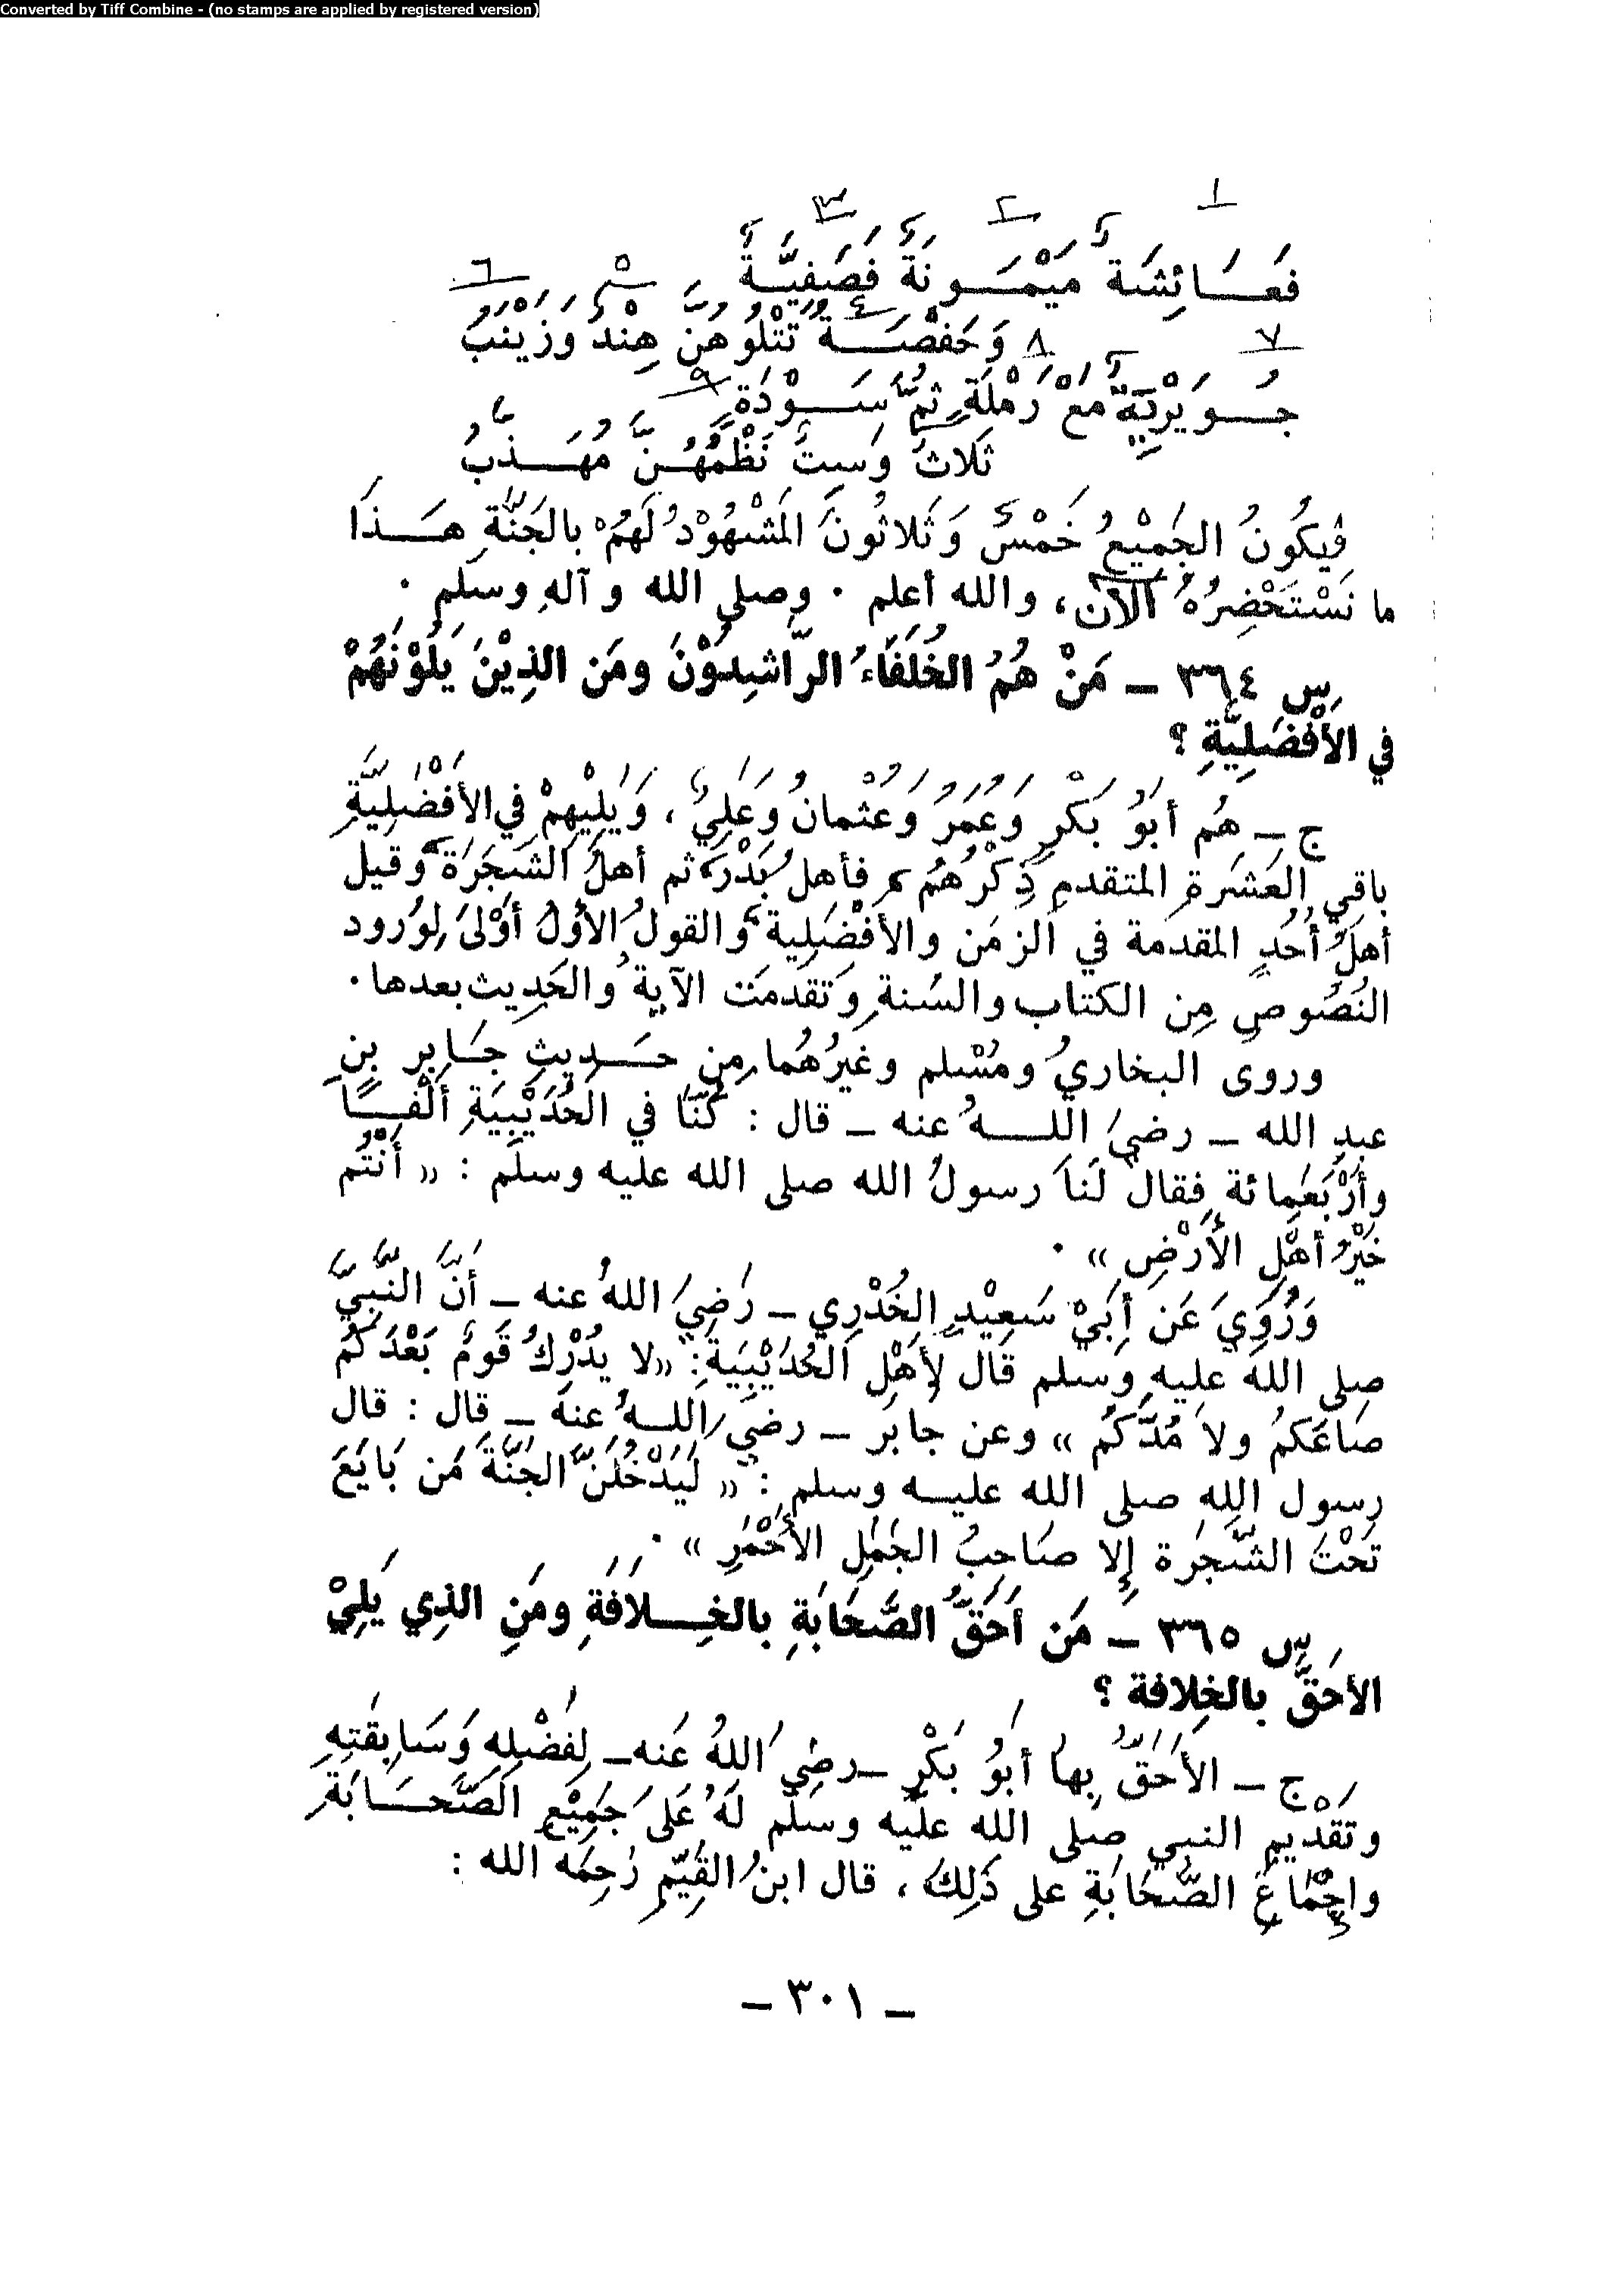 Converted by Tiff Combine - (no stamps are applied by registered version)
١ ٢ ٣
فَعَائِشَة مَيْمَونَةٌ فَصَفِيَّةٌ
٤ ٥ ٦
وَحَفْصَةٌ تَتْلُوهُنَّ هِنْدٌ وَزَيْنَبُ
٧ ٨ ٩
جُوَيْرِيَةٌ مَعْ رَمْلَةٍ ثُمَّ سَوْدَةٍ
ثَلاثٌ وَسِتٌ نَظْمُهُنَّ مُهَذَّبُ
فَيَكُونُ الجَمِيْعُ خَمْسٌ وَثَلاثُونَ المَشْهُوْدُ لَهُمْ بالجَنَّةِ هَذَا
ما نَسْتَحْضِرُهُ الآنَ، والله أعلم . وصلى الله وآلهِ وسلم .
س ٣٦٤ – مَنْ هُمُ الخُلَفَاءُ الرَّاشِدُوْنَ ومَن الذِيْنَ يَلُوْنَهُمْ
في الأفْضَلِيَّةِ ؟
ج – هُم أبُوْ بَكْرٍ وَعُمَرُ وَعُثْمانُ وَعَلِيٌ ، وَيَلِيْهِمْ في الأفْضَلِيَّةِ
باقي العَشَرةِ المتقدم ذِكْرُهُمُ ، فأهل بَدْر، ثم أهلُ الشَجَرَة، وقيل
أهلُ أُحُدٍ المقدمة في الزمَن والأفْضَلِية، والقولُ الأوُلُ أوْلىَ لِوُرود
النُصُوصِ مِن الكتاب والسُنةِ وَتقدمَت الآيةُ والحَدِيث بعدها .
وروى البخاريُ ومُسْلم وغيرُهُما مِن حَديثِ جَابِرِ بنِ
عبدِ الله – رضيَ اللهُ عنه – قال : كُنَّا في الحُدَيْبِيَةِ ألْفًا
وأرْبَعَمِائة فقالَ لَناَ رسولُ الله صلى الله عليه وسلم : « أنْتُم
خَيْرُ أهْلِ الأَرْضِ » .
وَرُوِيَ عَن أَبِيْ سَعِيْدٍ الخُدْرِي – رَضِيَ اللهُ عنه – أنَّ النَّبِيَّ
صلى الله عليهِ وسلم قال لأِهْلِ الحُدَيْبِيَةِ: «لا يُدْرِكُ قَومٌ بَعْدَكُم
صَاعَكمُ ولاَ مُدَّكُم » وعن جابر – رضيَ اللهُ عنهَ – قال : قال
رسول اللهِ صلى الله عليه وسلم : « لَيَدْخُلَنَّ الجَنَّةَ مَن بَايَعَ
تَحْتَ الشَّجَرَة إلا صَاحِبُ الجَمَلِ الأَحْمَرِ » .
س ٣٦٥ – مَن أحَقُّ الصَّحَابَةِ بالخِلافَةِ ومَنِ الذِي يَلِيْ
الأحَقَّ بالخِلافة ؟
ج – الأحَقُّ بِها أبُوْ بَكْرٍ –رضيَ اللهُ عَنه– لِفَضْلِهِ وَسَابِقَتِهِ
وتَقْدِيمِ النبي صَلى الله عليه وسَلم لَهُ عَلى جَمِيْعِ الصَّحَابَةِ
وإجْمَاعُ الصَّحَابَةِ على ذَلِكَ ، قال ابنُ القَيِّمِ رَحِمَه الله :
– ٣٠١ –